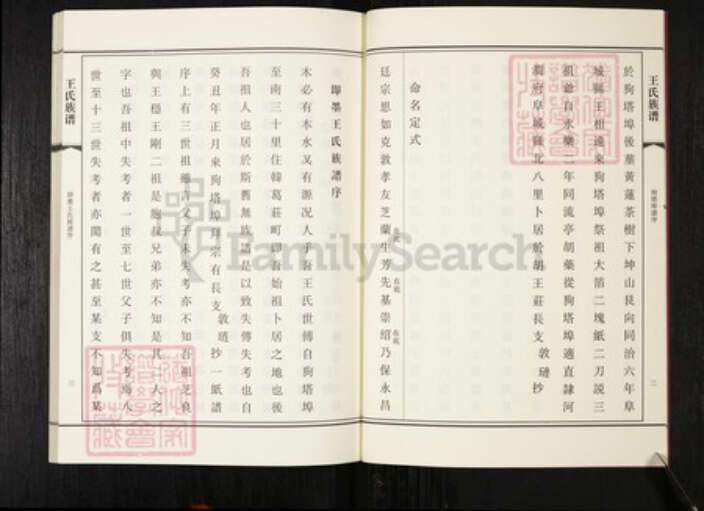 王氏族谱
於狗塔埠後墓黃蓮茶樹下坤山艮向同治六年阜
城縣王相遠來狗塔埠祭祖大箔二塊紙二刀説三
祖爺自永樂二年同流亭胡藥從狗塔埠適直隸河
間府阜城縣北八里卜居於胡王莊長支 敦璉抄
命名定式
廷宗思如克敦孝友芝蘭生芳先基崇紹乃保永昌
即墨王氏族譜序
木必有本水又有源况人乎吾王氏世傅自狗塔埠
至南三十里住韓葛莊町即吾始祖卜居之地也後
吾祖人也居於斯舊無族譜是以致失傅失考也自
癸丑年正月來狗塔埠拜宗有長支 敦璉抄一紙譜
序上有三世祖 言父子未失考亦不知吾祖芝良
與王穩王剛二祖是 叔兄弟亦不知是其一人之
字也吾祖中失考者一世至七世父子俱失考 八
世至十三世失考者亦間有之甚至某支不知爲某
王氏族谱
即墨王氏族譜序
FamilySearch